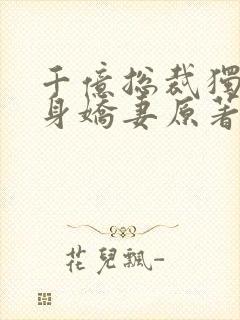 千億總裁獨
身嬌妻原著
花兒飄-